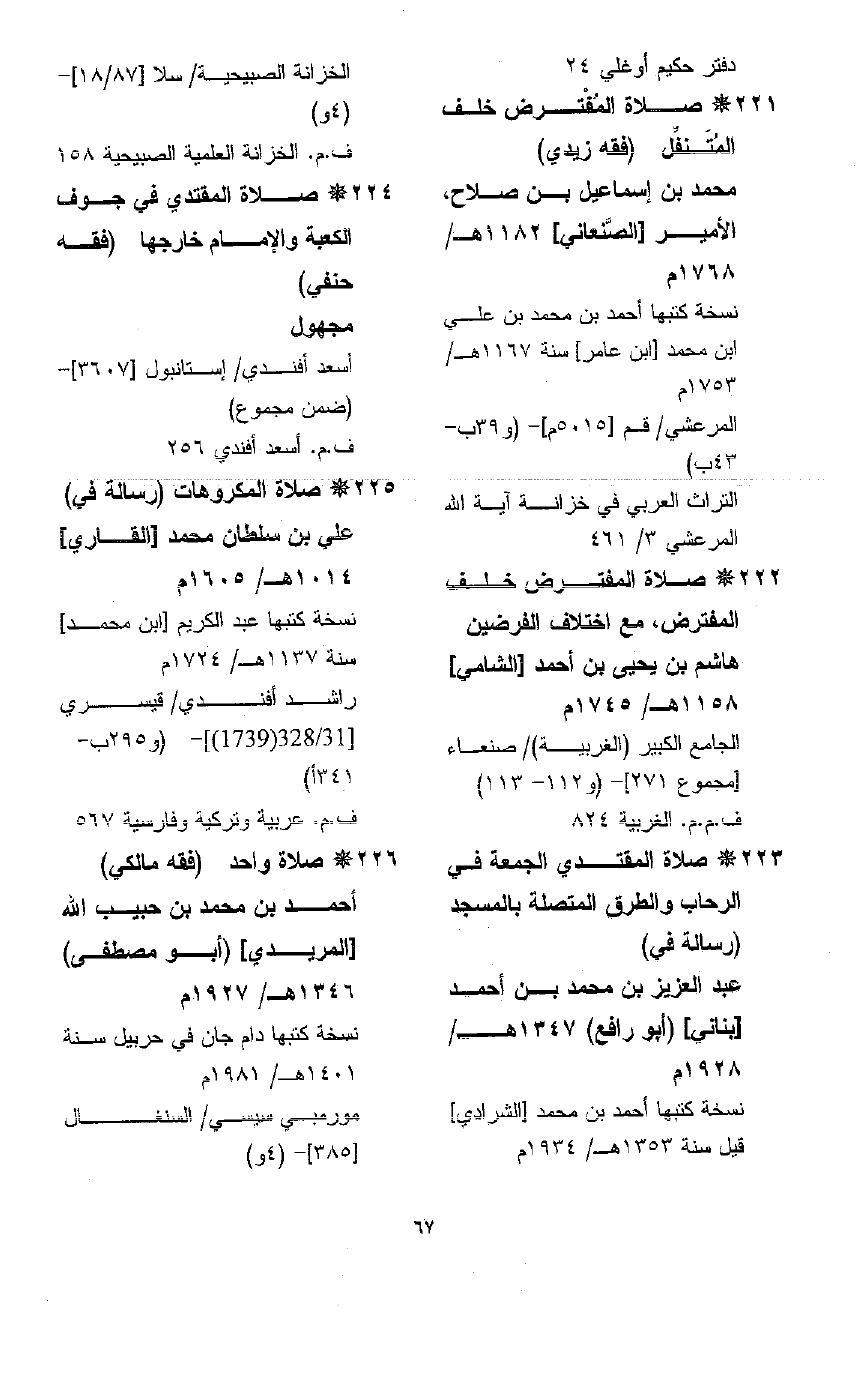 دفتر حكيم أوغلي ٢٤
٢٢١ ❋ صـــلاة المُفْتـــرض خلـف
المُتَــنفِّل (فقه زيدي)
محمد بن إسماعيل بـــن صـــلاح،
الأميـــر [الصَّنعاني] ١١٨٢هـــ/
١٧٦٨م
نسخة كتبها أحمد بن محمد بن علـــي
ابن محمد [ابن عامر] سنة ١١٦٧هـــ/
١٧٥٣م
المرعشي/ قـم [٥٠١٥م]- (و٣٩ب-
٤٣ب)
التراث العربي في خزانـــة آيـــة الله
المرعشي ٣/ ٤٦١
٢٢٢ ❋ صـــلاة المفتـــرض خـلـف
المفترض، مع اختلاف الفرضين
هاشم بن يحيى بن أحمد [الشامي]
١١٥٨هـــ/ ١٧٤٥م
الجامع الكبير (الغربيـــة)/ صنعـاء
[مجموع ٢٧١]- (و١١٢- ١١٣)
ف.م.م. الغربية ٨٢٤
٢٢٣ ❋ صلاة المقتـــدي الجمعة فـي
الرحاب والطرق المتصلة بالمسجد
(رسالة في)
عبد العزيز بن محمد بـــن أحمـــد
[بناني] (أبو رافع) ١٣٤٧هـــ/
١٩٢٨م
نسخة كتبها أحمد بن محمد [الشرادي]
قبل سنة ١٣٥٣هـــ/ ١٩٣٤م
الخزانة الصبيحيـــة/ سلا [١٨/٨٧]-
(٤و)
ف.م. الخزانة العلمية الصبيحية ١٥٨
٢٢٤ ❋ صـــلاة المقتدي في جـــوف
الكعبة والإمـــام خارجها (فقـــه
حنفي)
مجهول
أسعد أفنـــدي/ إستانبول [٣٦٠٧]-
(ضمن مجموع)
ف.م. أسعد أفندي ٢٥٦
٢٢٥ ❋ صلاة المكروهات (رسالة في)
علي بن سلطان محمد [القـــاري]
١٠١٤هـــ/ ١٦٠٥م
نسخة كتبها عبد الكريم [ابن محمـــد]
سنة ١١٣٧هـــ/ ١٧٢٤م
راشـــد أفنـــدي/ قيســـري
[328/31(1739)]- (و٢٩٥ب-
٣٤١أ)
ف.م. عربية وتركية وفارسية ٥٦٧
٢٢٦ ❋ صلاة واحد (فقه مالكي)
أحمـــد بن محمد بن حبيـــب الله
[المريـــدي] (أبـــو مصطفـــى)
١٣٤٦هـــ/ ١٩٢٧م
نسخة كتبها دام جان في حربيل ســنة
١٤٠١هـــ/ ١٩٨١م
مورمبـــي سيسـي/ السنغـــال
[٣٨٥]- (٤و)
٦٧